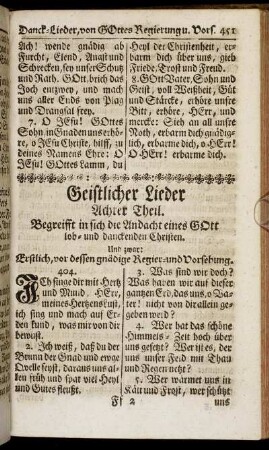 Danck-Lieder, von GOttes Regierung u. Vors. 451
Ach! wende gnädig ab
Furcht, Elend, Angst und
Schrecken, sey unser Schutz
und Rath. GOtt brich das
Joch entzwey, und mach
uns aller Ends von Plag
und Drangsal frey.
7. O JEsu! GOttes
Sohn in Gnaden uns erhö-
re, o JEsu Christe, hilff, zu
deines Namens Ehre: O
JEsu! GOttes Lamm, du
Heyl der Christenheit, er-
barm dich über uns, gieb
Friede, Trost und Freud.
8. GOtt Vater, Sohn und
Geist, voll Weißheit, Güt
und Stärcke, erhöre unsre
Bitt, erhöre, HErr, und
mercke: Sieh an all unsre
Noth, erbarm dich gnädig-
lich, erbarme dich, o HErr!
O HErr! erbarme dich.
Geistlicher Lieder
Achter Theil.
Begreifft in sich die Andacht eines GOtt
lob- und danckenden Christen.
Und zwar:
Erstlich, vor dessen gnädige Regier- und Vorsehung.
404.
Ich singe dir mit Hertz
und Mund, HErr,
meines Hertzens Lust,
ich sing und mach auf Er-
den kund, was mir von dir
bewust.
2. Ich weiß, daß du der
Brunn der Gnad und ewge
Qvelle seyst, daraus uns al-
len früh und spat viel Heyl
und Gutes fleußt.
3. Was sind wir doch?
Was haben wir auf dieser
gantzen Erd, das uns, o Va-
ter! nicht von dir allein ge-
geben werd?
4. Wer hat das schöne
Himmels-Zelt hoch über
uns gesetzt? Wer ist es, der
uns unser Feld mit Thau
und Regen netzt?
5. Wer wärmet uns in
Kält und Frost, wer schützt
Ff 2
uns